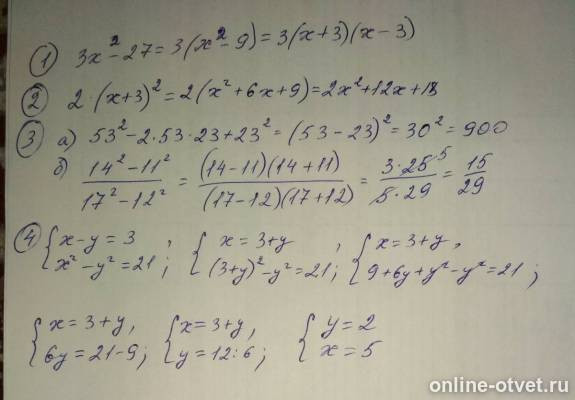 1) 3x² - 27 = 3(x² - 9) = 3(x+3)(x-3)
2) 2·(x+3)² = 2(x² + 6x + 9) = 2x² + 12x + 18
3) а) 53² - 2·53·23 + 23² = (53 - 23)² = 30² = 900
б) (14² - 11²)/(17² - 12²) = ((14-11)(14+11))/((17-12)(17+12)) = (3·25⁵)/(5·29) = 15/29
4) { x - y = 3, { x = 3+y, { x = 3+y,
x² - y² = 21; (3+y)² - y² = 21; 9 + 6y + y² - y² = 21;
{ x = 3+y, { x = 3+y, { y = 2
6y = 21-9; y = 12:6; x = 5
online-otvet.ru